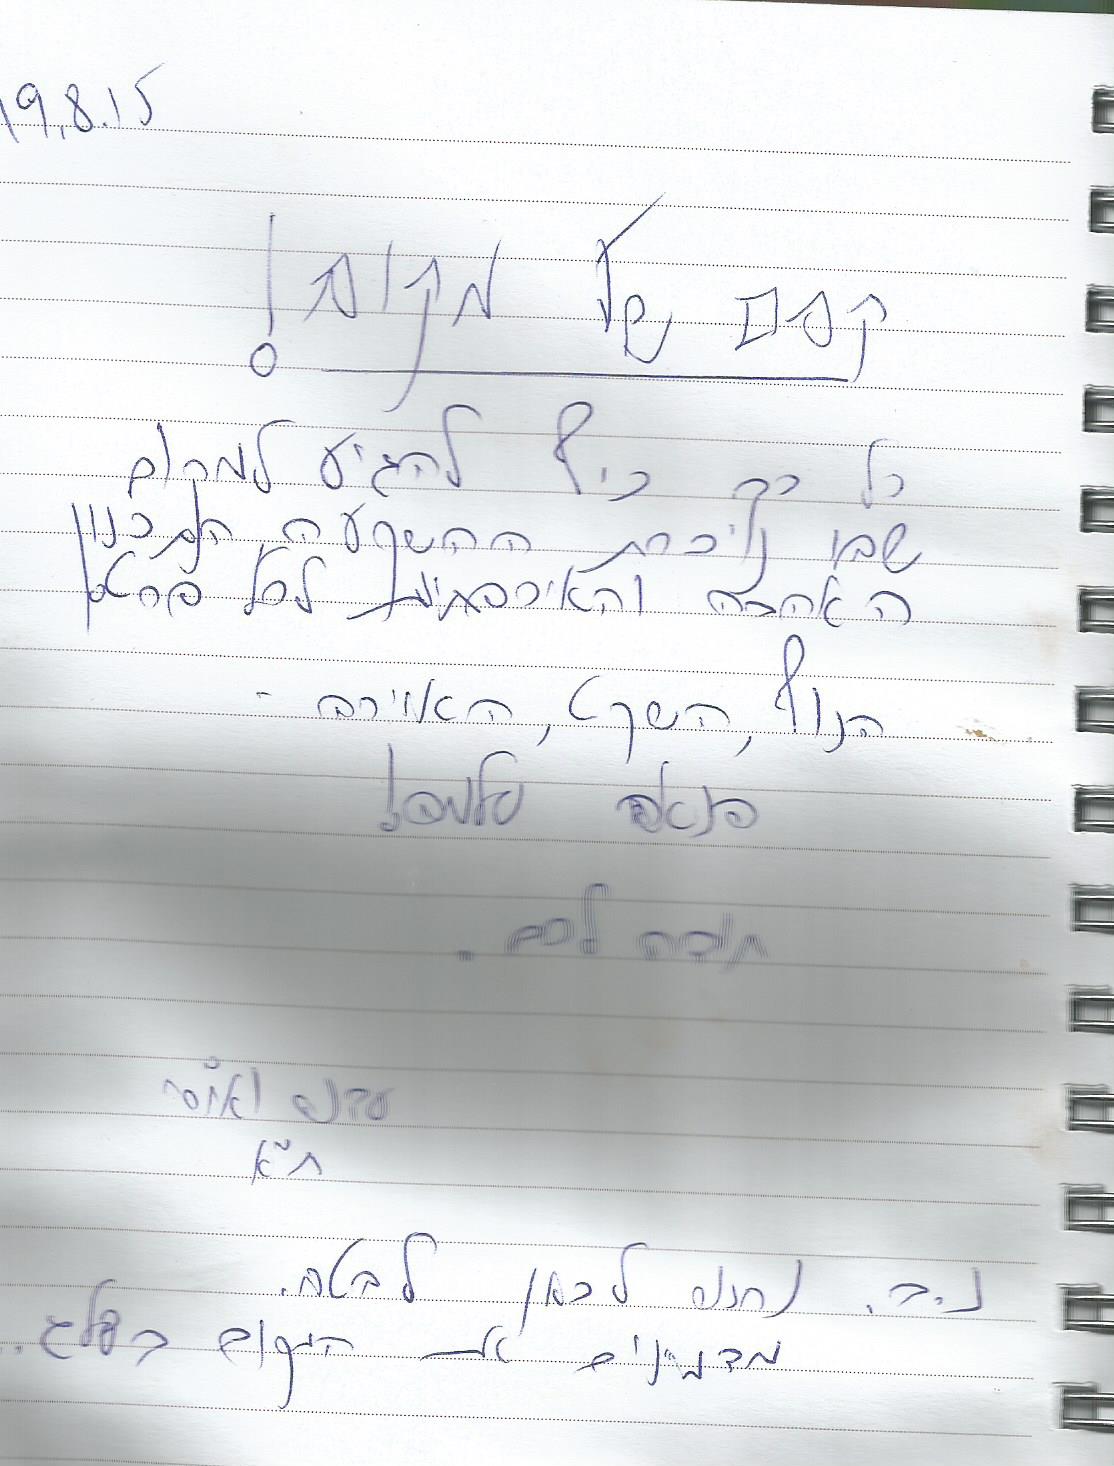 19.8.15
קסם של מקום!
כל כך כיף להגיע למקום
שבו ניכרת ההשקעה, התכנון
האהבה והאיכפתיות לכל פרט
הנוף, השקט, האוירה -
פשוט מושלם!
תודה לכם.
ת"א
נ.ב. נחזור לכאן לבטח.
מדמיינים את המקום בשלג..